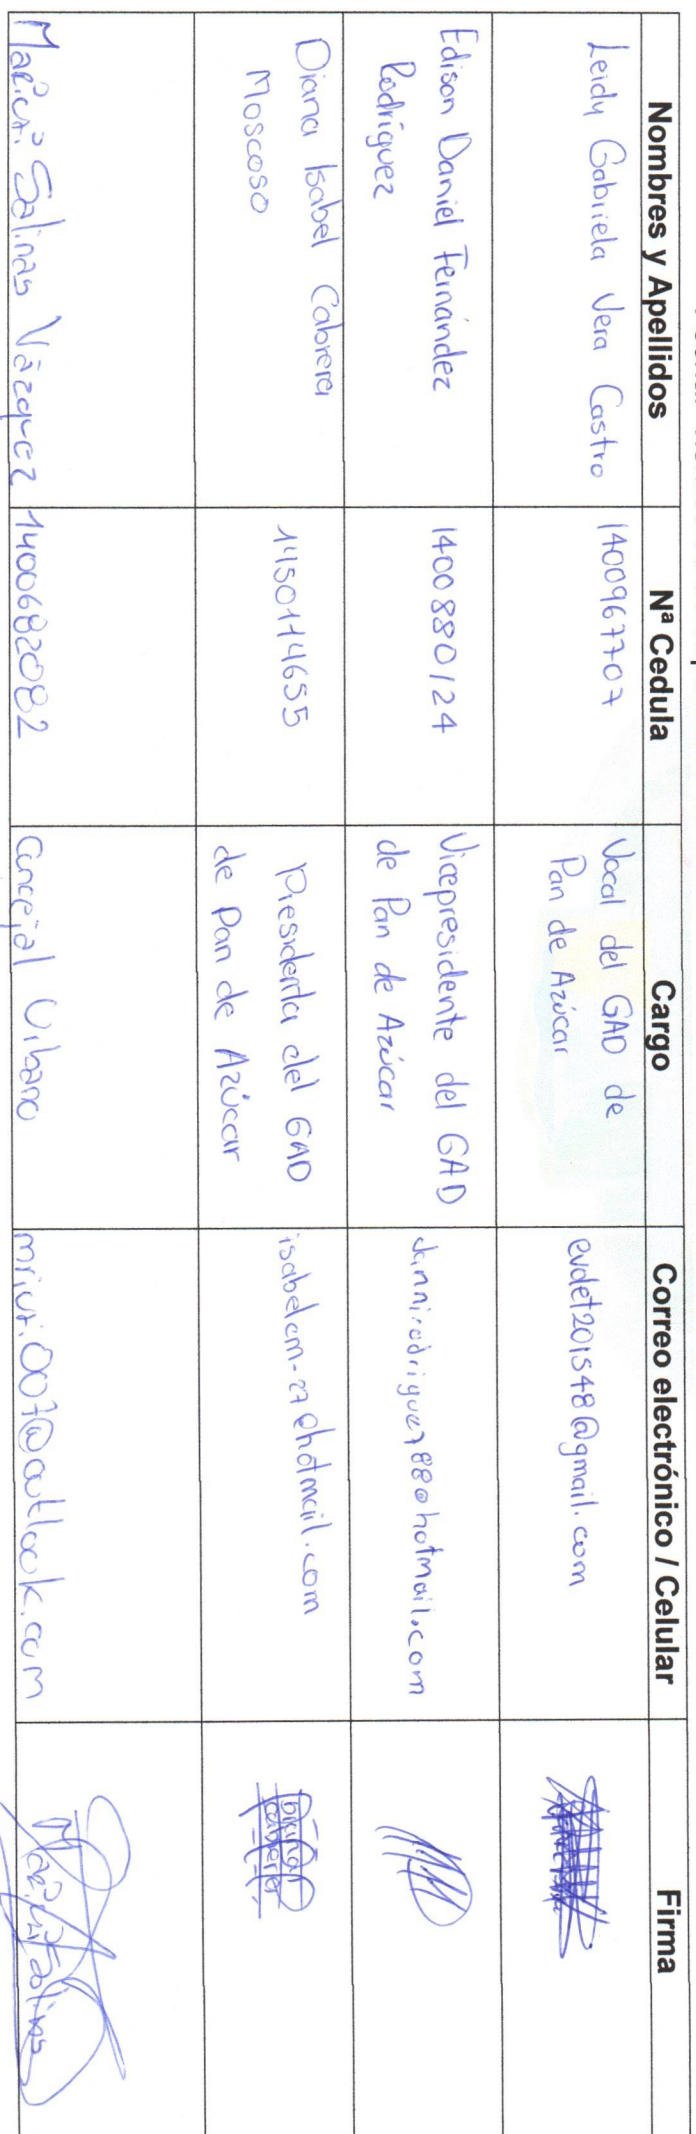 Nombres y Apellidos Nª Cedula Cargo Correo electrónico / Celular Firma
Leidy Gabriela Vera Castro 1400967707 Vocal del GAD de
Pan de Azúcar evdet201548@gmail.com
Edison Daniel Fernández
Rodríguez 1400880124 Vicepresidente del GAD
de Pan de Azúcar dannirodriguez788@hotmail.com
Diana Isabel Cabrera
Moscoso 1450114655 Presidenta del GAD
de Pan de Azúcar isabelcm-27@hotmail.com
Diana
Cabrera
Salinas Vàzquez 1400682082 Concejal Urbano mriuxi.007@outlook.com
Salinas